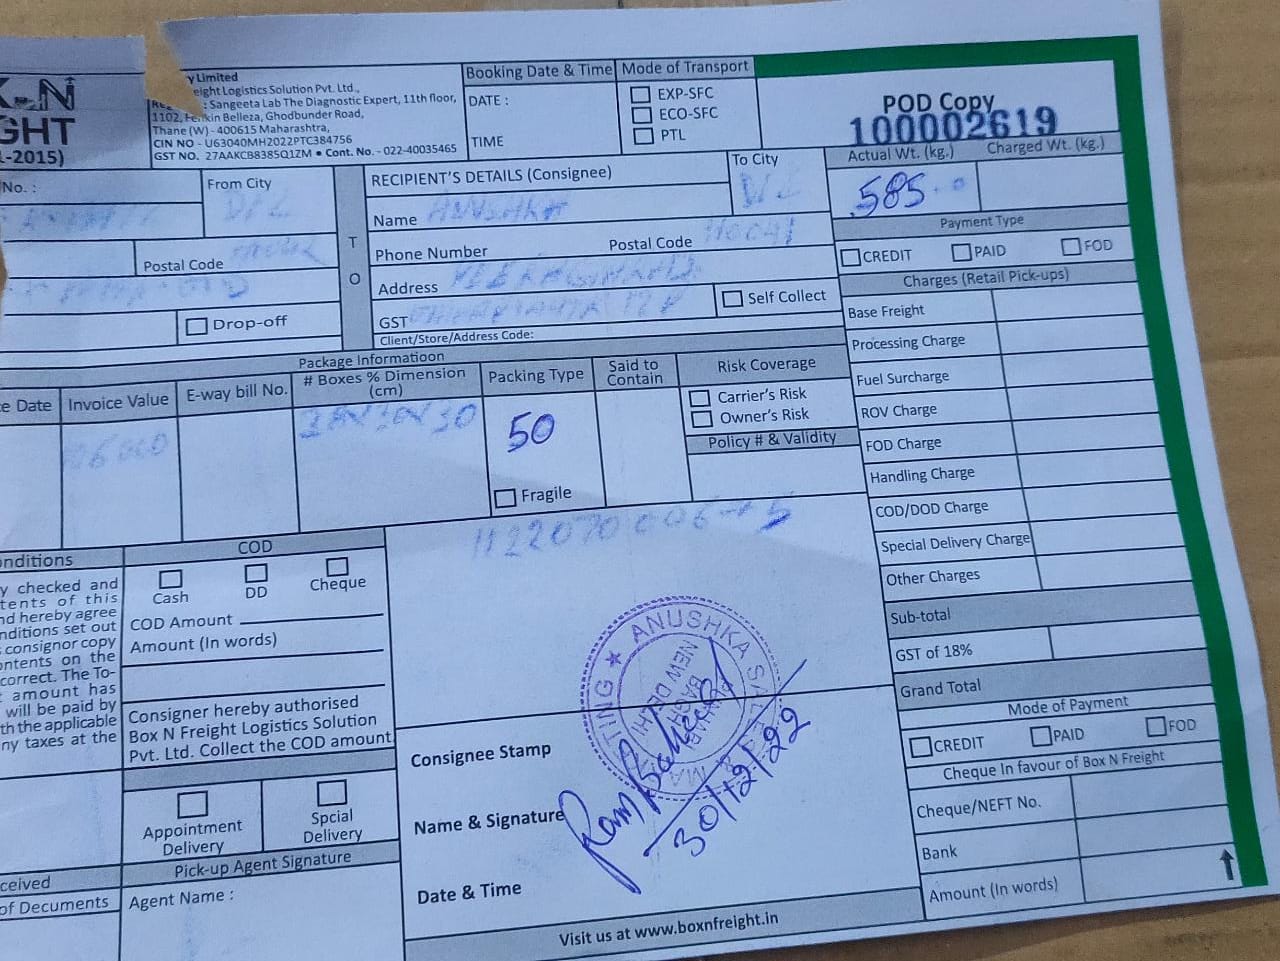 y Limited
eight Logistics Solution Pvt. Ltd.,
: Sangeeta Lab The Diagnostic Expert, 11th floor,
1102, Belleza, Ghodbunder Road,
Thane (W) - 400615 Maharashtra,
CIN NO - U63040MH2022PTC384756
GST NO. 27AAKCB8385Q1ZM • Cont. No. - 022-40035465
GHT
-2015)
Booking Date & Time
DATE :
TIME
Mode of Transport
EXP-SFC
ECO-SFC
PTL
POD Copy
100002619
No. :
From City
Postal Code
Drop-off
T
O
RECIPIENT'S DETAILS (Consignee)
To City
Name ANUSHKA
Phone Number
Postal Code 110041
Address
GST
Self Collect
Client/Store/Address Code:
Actual Wt. (kg.)
Charged Wt. (kg.)
585
Payment Type
CREDIT PAID FOD
Charges (Retail Pick-ups)
Base Freight
Processing Charge
Fuel Surcharge
ROV Charge
FOD Charge
Handling Charge
COD/DOD Charge
Special Delivery Charge
Other Charges
Sub-total
GST of 18%
Grand Total
Mode of Payment
CREDIT PAID FOD
Cheque In favour of Box N Freight
Cheque/NEFT No.
Bank
Amount (In words)
Package Informatioon
ce Date
Invoice Value
E-way bill No.
# Boxes % Dimension
(cm)
Packing Type
50
Fragile
Said to
Contain
Risk Coverage
Carrier's Risk
Owner's Risk
Policy # & Validity
nditions
y checked and
tents of this
nd hereby agree
nditions set out
consignor copy
ontents on the
correct. The To-
t amount has
will be paid by
th the applicable
ny taxes at the
COD
Cash DD Cheque
COD Amount
Amount (In words)
Consigner hereby authorised
Box N Freight Logistics Solution
Pvt. Ltd. Collect the COD amount
Appointment
Delivery
Spcial
Delivery
Pick-up Agent Signature
ceived
of Documents
Agent Name :
Consignee Stamp
ANUSHKA
NEW DELHI
Name & Signature
30/12/22
Date & Time
Visit us at www.boxnfreight.in